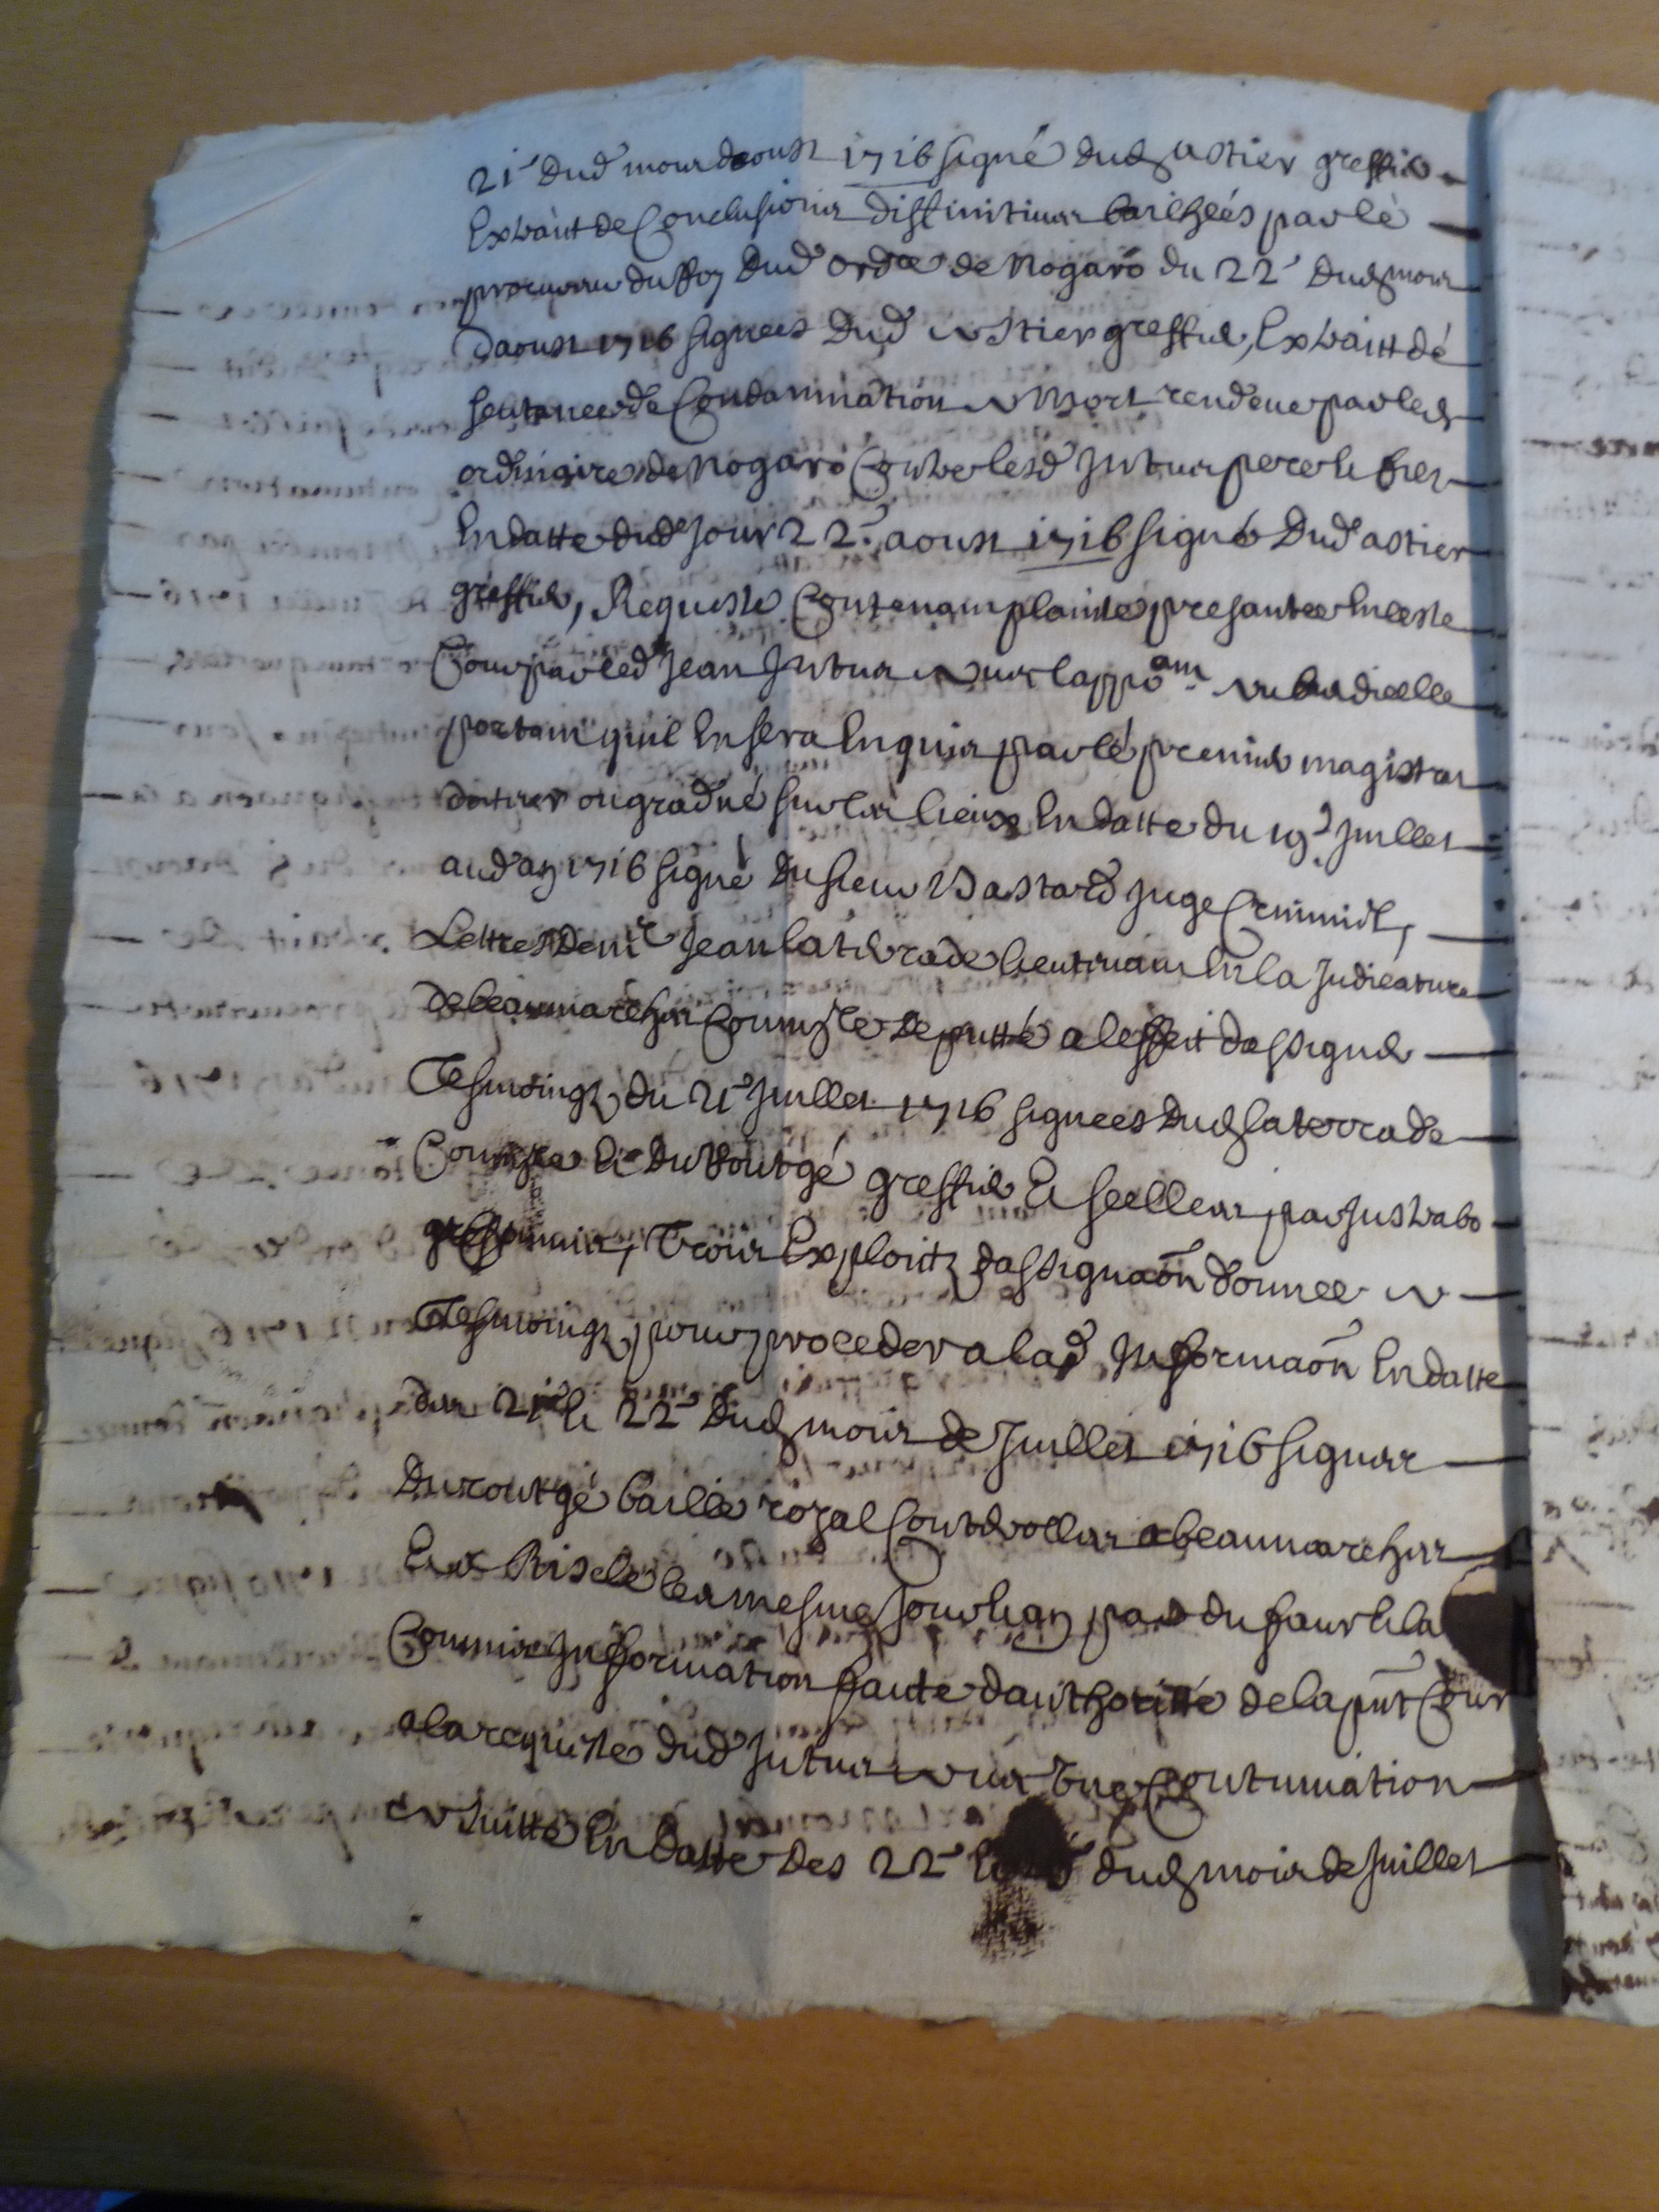 21e dud mois daoust 1716 signé dud astier greffier
Extrait de Conclusions diffinitives bailhées par le
procureur du Roy dud ordre de Nogaro du 22e dud mois
daoust 1716 signées dud astier greffier, Extrait de
sentence de Condamnation a mort rendeue par led
ordinaire de Nogaro Contre lesd Jntras pere et fils
En datte dud jour 22e aoust 1716 signé dud astier
greffier, Requeste Contenant plainte presantée En ceste
Cour par led Jean Jntras avec lappoant au bas dicelle
portant quil En sera Enquis par le premier magistrat
ou gradué sur les lieux En datte du 19e Juillet
aud an 1716 signé du sieur Bastard Juge Criminel,
Lettres de mr Jean laterrade lieutenant En la Judicature
de beaumarches Commre deputté a leffeit dassigner
Tesmoings du 21e Juillet 1716 signées dud laterrade
Commre et du Rourgé greffier Et scellées par Justrabo
Trois Exploitz dassignaon donnée a
Tesmoings pour proceder a lad Informaon En datte
des 21e et 22e dud mois de Juillet 1716 signés
Durourgé baille royal Controllés a beaumarches
Et a Riscle les mesmes jour et an par dufaur et la
Commis Information faite dauthoritté de la pnt Cour
a la requeste dud Jntras avec une Continuation
En suitte En datte des 22e Et dud mois de Juillet